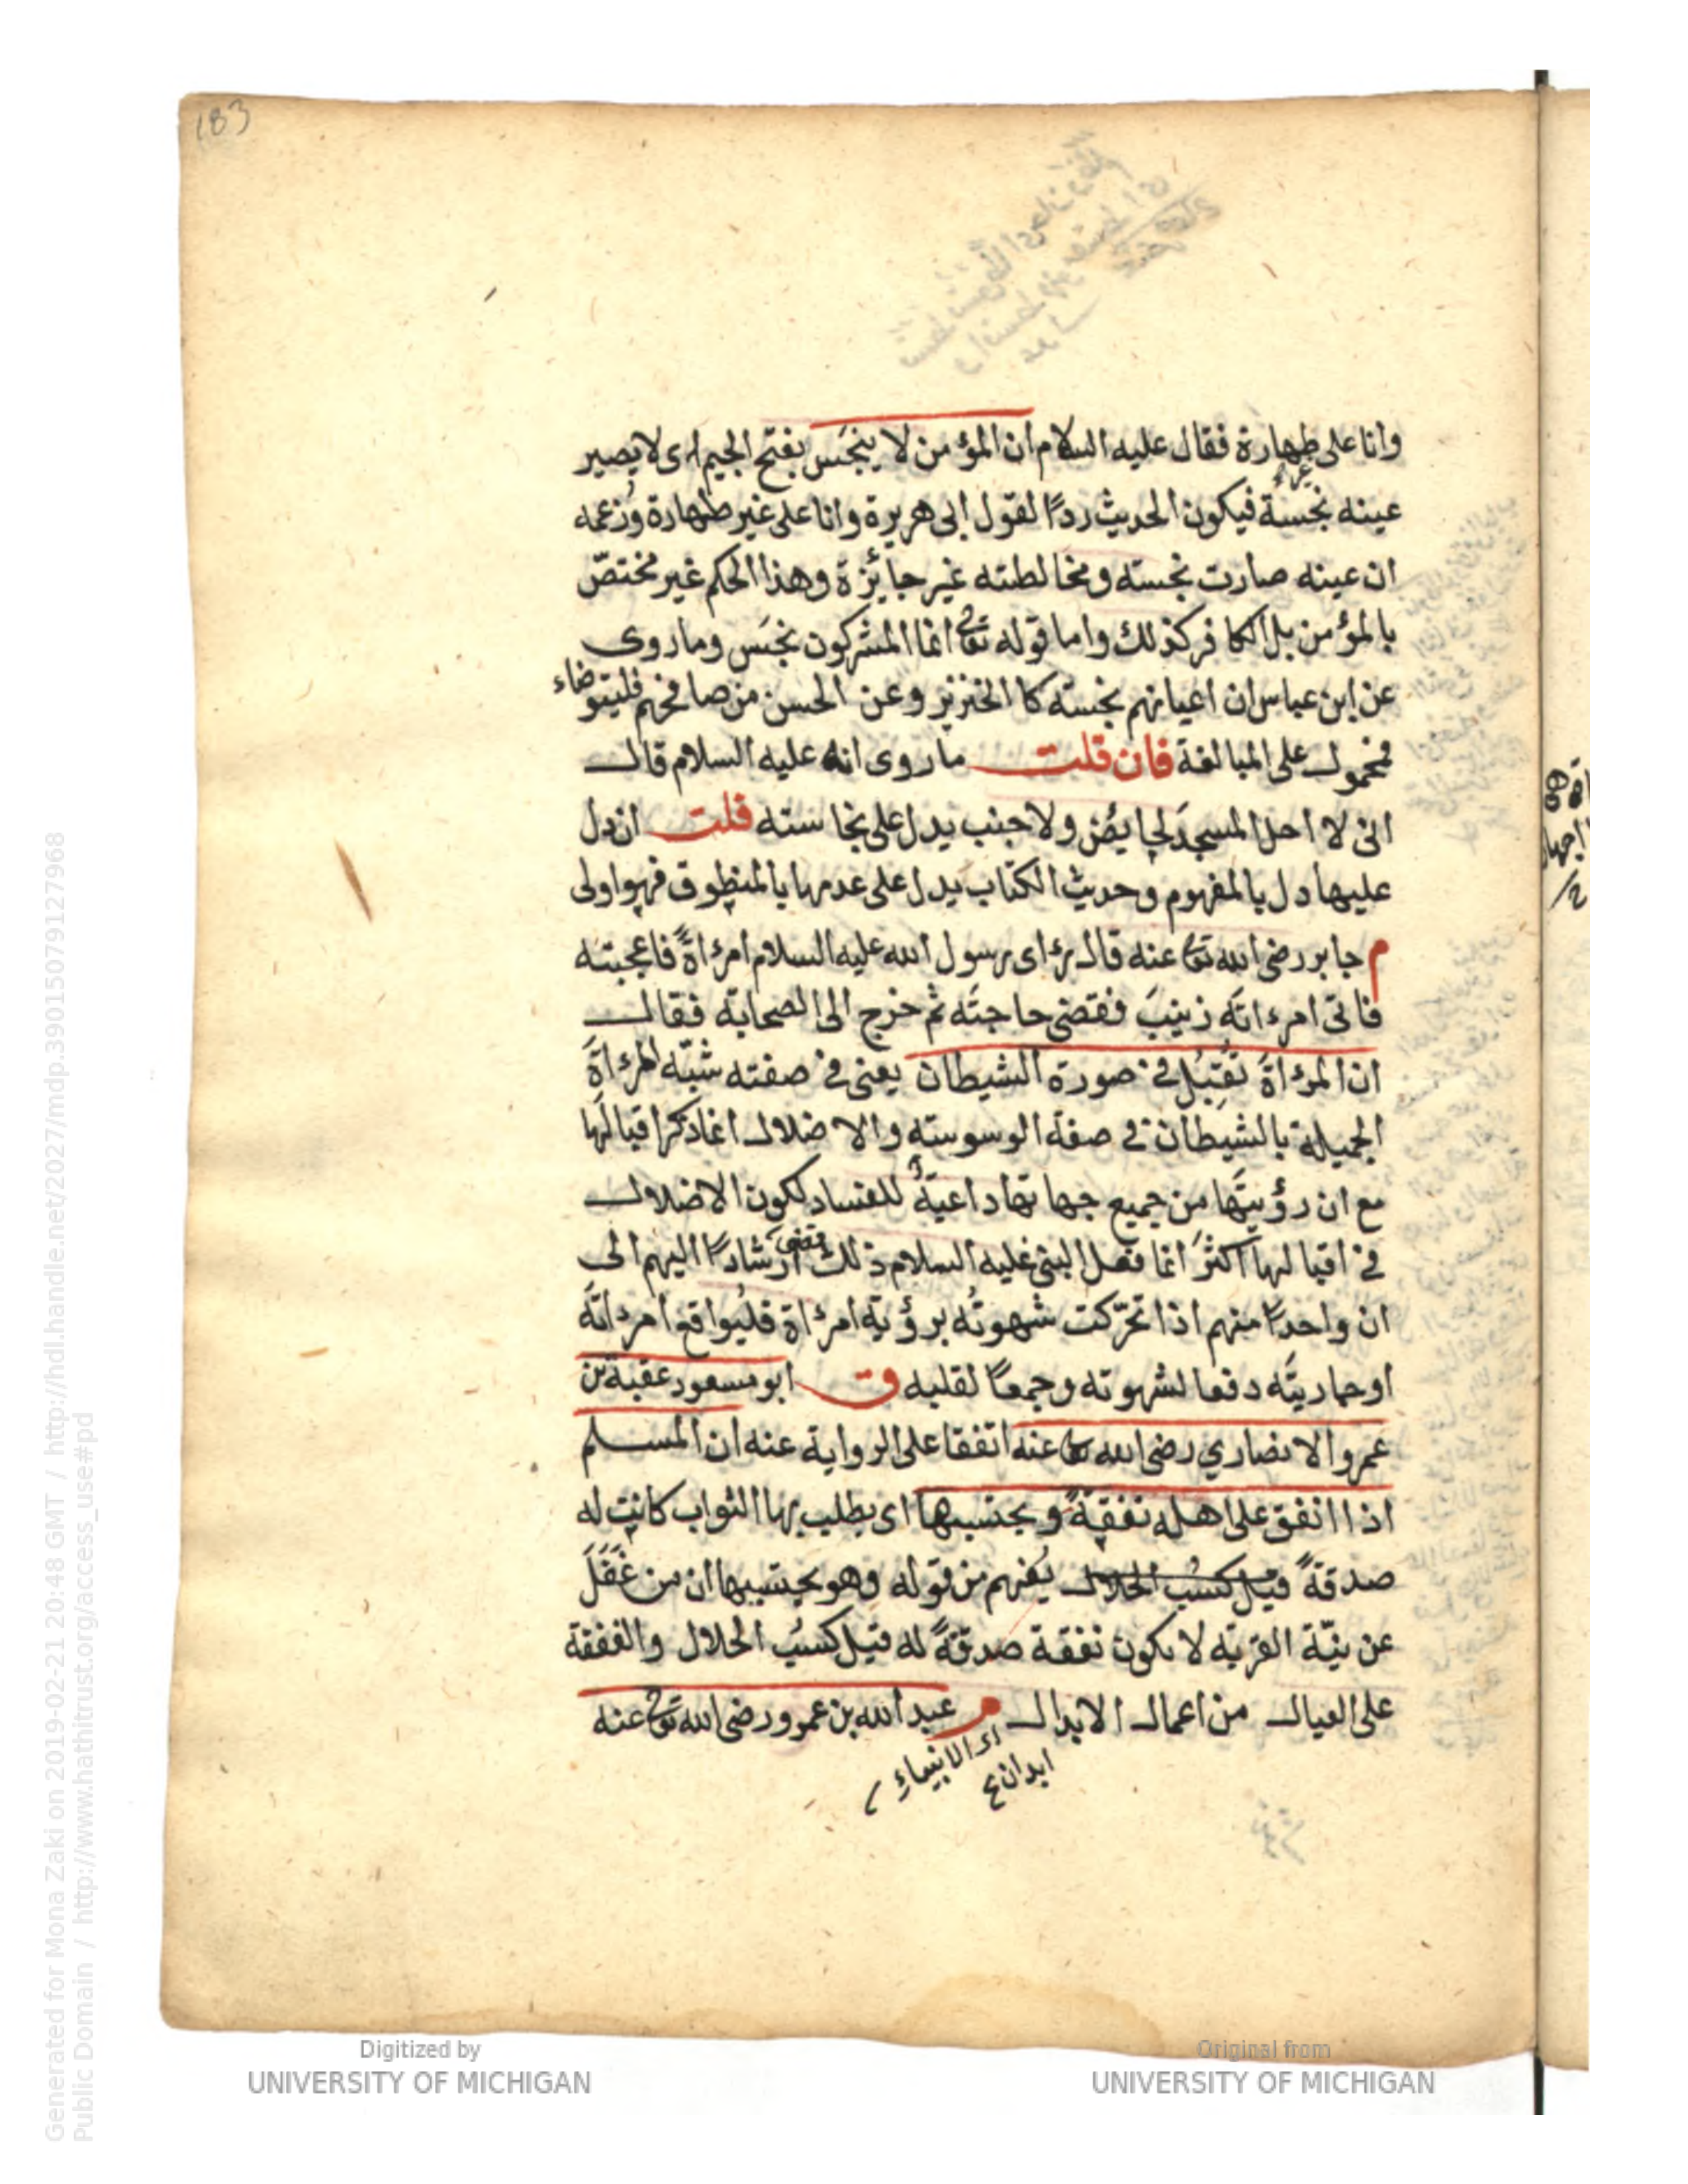 183
وانا على طهارة فقال عليه السلام ان المؤمن لا ينجَس بفتح الجيم اى لا يصير
عينه نجسةً فيكون الحديث ردًا لقول ابى هريرة وانا على غير طهارة وزعمه
ان عينه صارت نجسته ومخالطته غير جائزة وهذا الحكم غير مختصّ
بالمؤمن بل الكافر كذلك واما قوله تعالى انما المشركون نجَس وما روى
عن ابن عباس ان اعيانهم نجسته كا الخنزير وعن الحسن من صافحهم فليتوضاء
فمحمول على المبالغة فان قلت ما روى انه عليه السلام قال
انى لا احل المسجدَ لحايُضٍ ولا جنب يدل على نجاسته قلت ان دل
عليها دل بالمفهوم وحديث الكتاب يدل على عدمها بالمنطوق فهوا ولى
م جابر رضى الله تعالى عنه قال رءاى رسول الله عليه السلام امرءاةً فاعجبته
فاتى امرءاتَه زينبَ فقضى حاجتَه ثم خرج الى الصحابة فقال
ان المرءاةَ تُقبِل فى صورة الشيطان يعنى فى صفته شبّه المرءاةَ
الجميلة بالشيطان فى صفة الوسوسته والاضلال انما ذكرا قبالَها
مع ان رؤيتَها من جميع جهاتها داعيةٌ للفساد لكون الاضلال
فى اقبالها اكثرَ انما فعل النبى عليه السلام ذلك ارشادًا اليهم الى
ان واحدًا منهم اذا تحرّكت شهوتُه برؤية امرءاة فليُواقع امرءاتَه
اوجاريتَه دفعا لشهوته وجمعًا لقلبه ق ابو مسعود عقبة بن
عمرو الانصاري رضى الله عنه اتفقا على الرواية عنه ان المسلم
اذا انفق على اهله نفقةً و يحتسبها اى يطلب بها الثواب كانت له
صدقةً قيل كسْب الحلال يُفهم من قوله وهو يحتسبها ان من غَفَلَ
عن نيّة القربة لا يكون نفقة صدقةً له قيل كسْب الحلال والنفقة
على العيال من اعمال الابدال م عبد الله بن عمرو رضى الله تعالى عنه
ابدان
الانبياء
Digitized by
UNIVERSITY OF MICHIGAN
Original from
UNIVERSITY OF MICHIGAN
Generated for Mona Zaki on 2019-02-21 20:48 GMT / http://hdl.handle.net/2027/mdp.39015079127968
Public Domain / http://www.hathitrust.org/access_use#pd